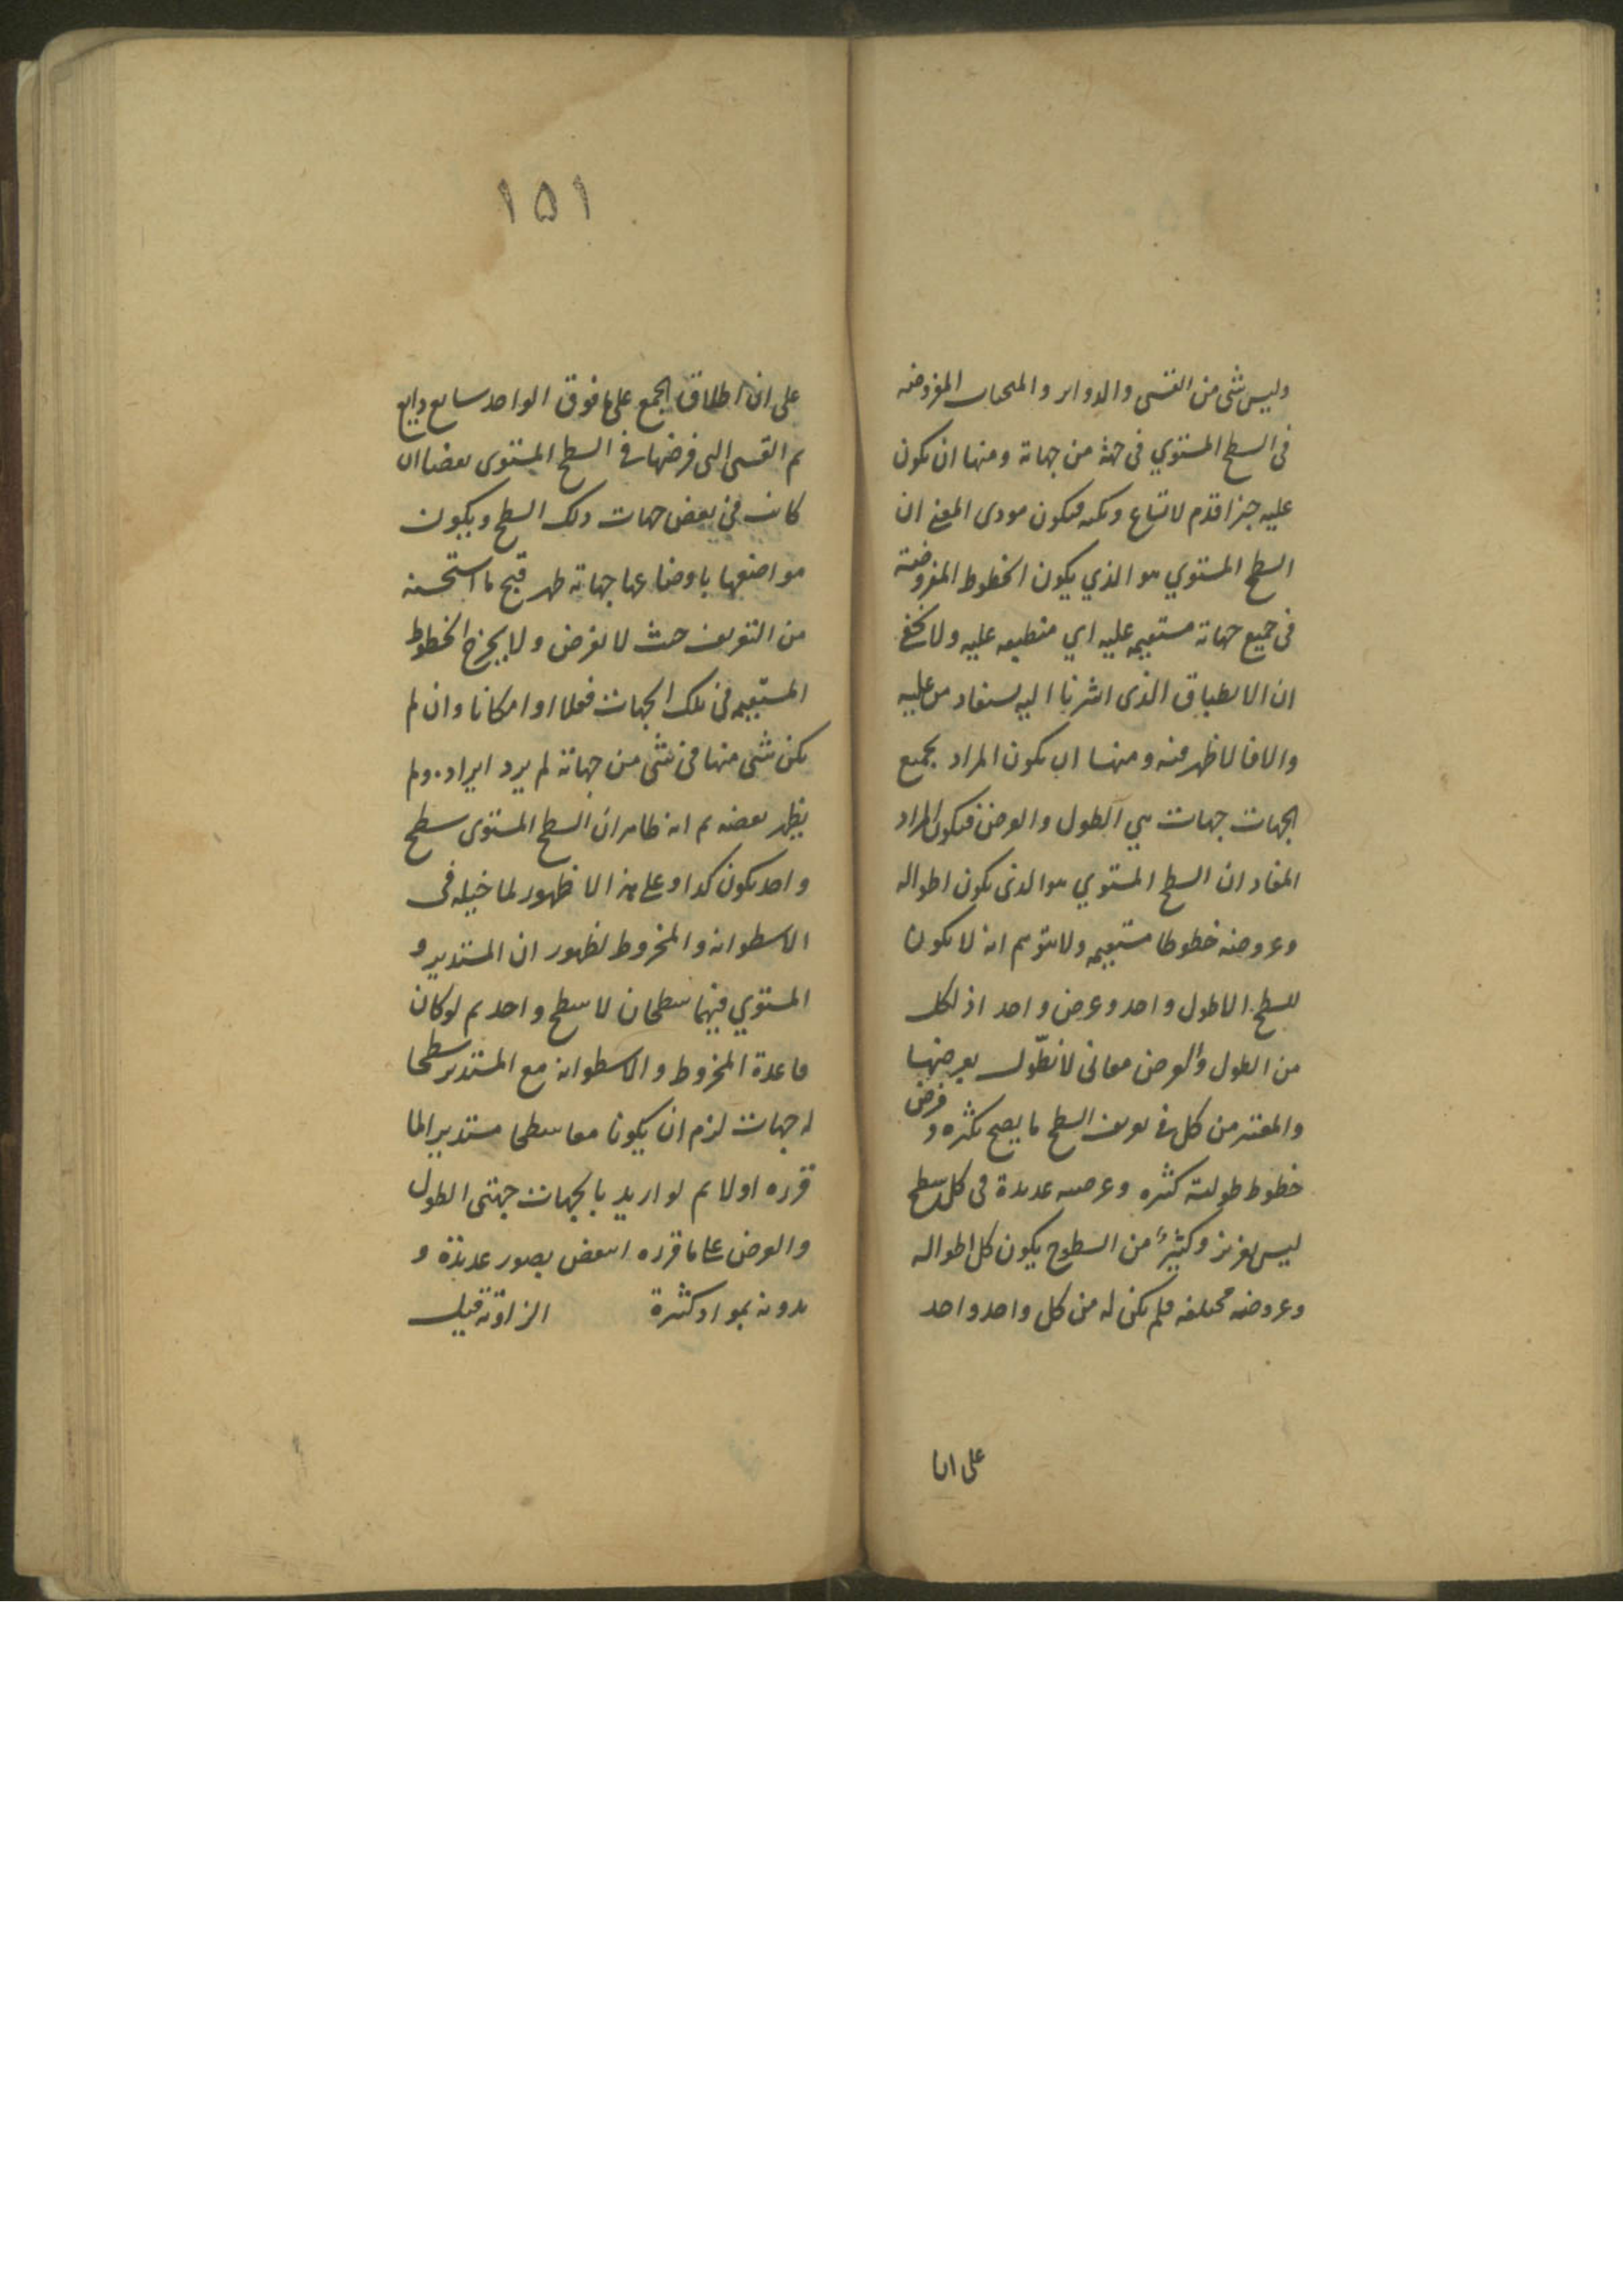 وليس شى من القسى والدواير والمنحنيات المفروضه
فى السطح المستوي فى جهة من جهاته ومنها ان يكون
عليه خبرا قدم لاتساع ونكته فيكون مودى المعنى ان
السطح المستوي هو الذي يكون الخطوط المفروضة
فى جميع جهاته مستقيمه عليه اي منطبقه عليه ولا يخفى
ان الانطباق الذى اشرنا اليه يستفاد من عليه
والا فالاظهر فيه ومنها ان يكون المراد بجميع
الجهات جهات هي الطول والعرض فيكون المراد
المفاد ان السطح المستوي هو الذى يكون اطواله
وعروضه خطوطا مستقيمه ولا يتوهم انه لا يكون
للسطح الا طول واحد وعرض واحد اذ لكل
من الطول والعرض معانى لا نطول بعرضها
والمعتبر من كل فى تعريف السطح ما يصح تكثره و فرض
خطوط طولية كثيره وعرضيه عديدة فى كل سطح
ليس بعزيز وكثير من السطوح يكون كل اطواله
وعروضه مختلفه فلم يكن له من كل واحد واحد
على انا
١٥١
على ان اطلاق الجمع على ما فوق الواحد سايع ذايع
ثم القسى التى فرضها فى السطح المستوى نقضا ان
كانت فى بعض جهات ذلك السطح ويكون
مواضعها باوضاعها جهاته ظهر قبح ما استحسنه
من التعريف حيث لا يفرض ولا يخرج الخطوط
المستقيمه فى تلك الجهات فعلا او امكانا وان لم
يكن شى منها فى شى من جهاته لم يرد ايراده ولم
يظهر نقضه ثم انه ظاهر ان السطح المستوى سطح
واحد يكون كذا وعلى هذا لا ظهور لما خيله فى
الاسطوانه والمخروط لظهور ان المستدير و
المستوي فيهما سطحان لا سطح واحد ثم لو كان
قاعدة المخروط والاسطوانه مع المستدير سطحا
له جهات لزم ان يكونا معا سطحا مستديرا لما
قرره اولا ثم لو اريد بالجهات جهتى الطول
والعرض على ما قرره انتقض بصور عديدة و
بدونه بمواد كثيرة الزاوية قيل